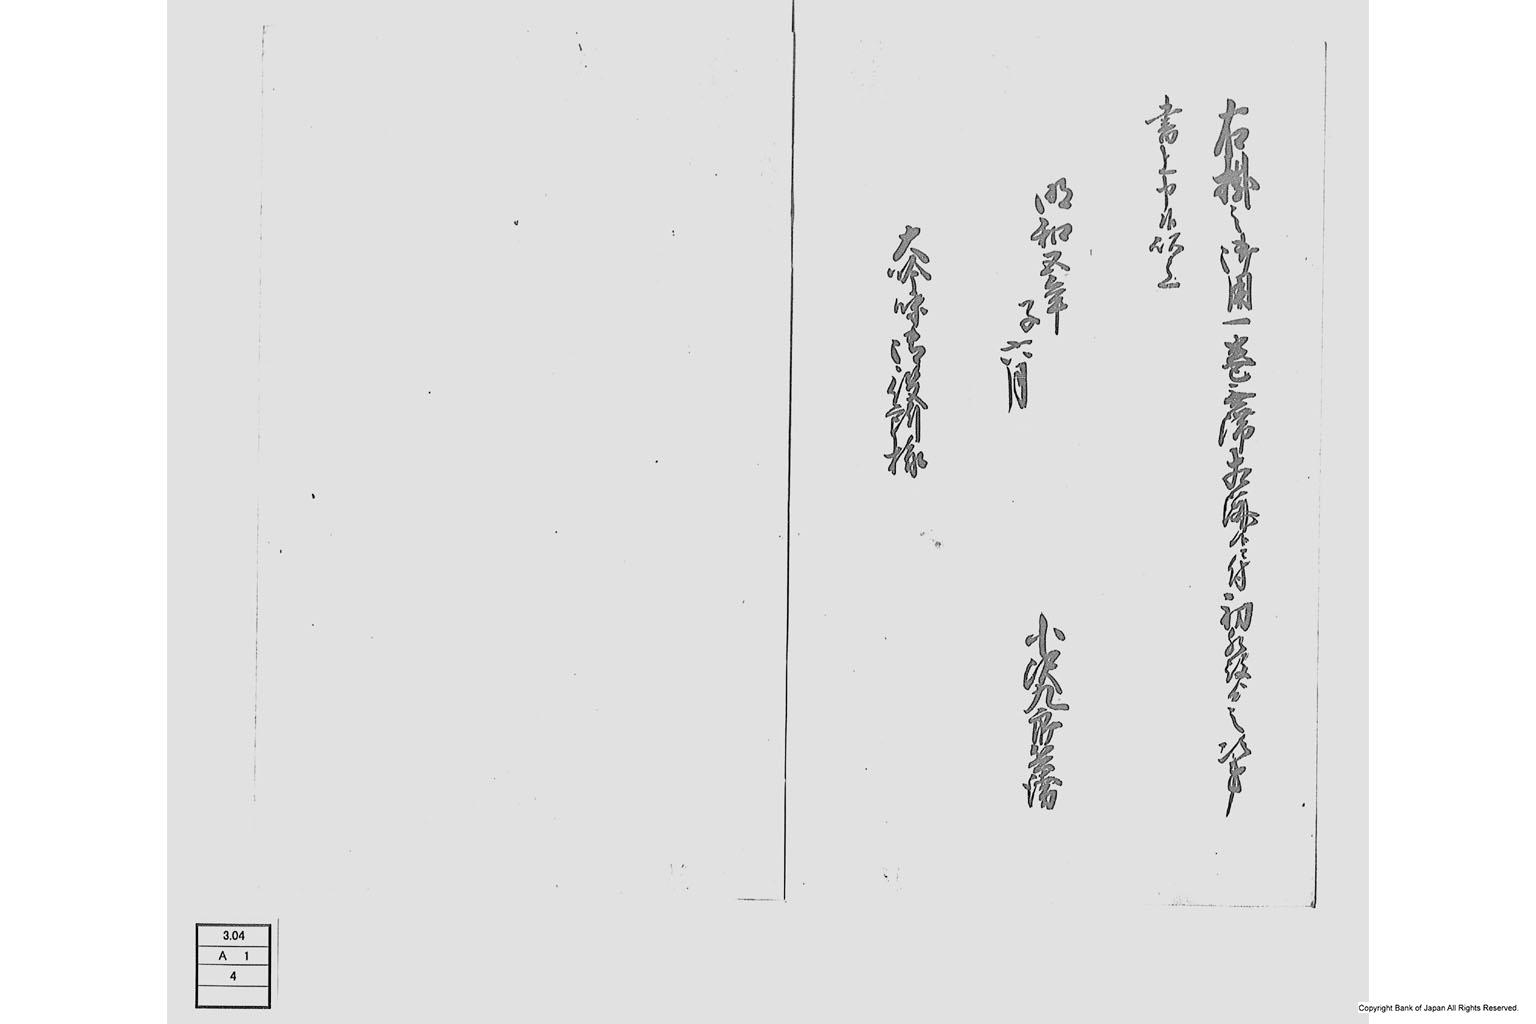 右掛之御用一巻之席相済候付初発より之次第
書上申候以上
明和五年
子六月
小沢九郎兵衛
大吟味御役所様
3.04
A 1
4
Copyright Bank of Japan All Rights Reserved.